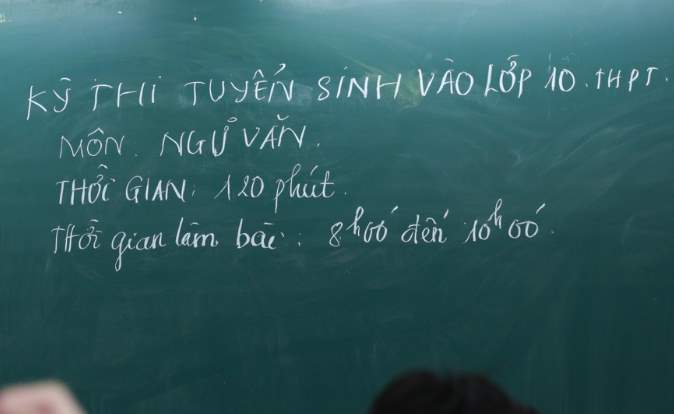 KỲ THI TUYỂN SINH VÀO LỚP 10. THPT.
MÔN. NGỮ VĂN.
THỜI GIAN: 120 phút.
Thời gian làm bài: 8h00' đến 10h00'.